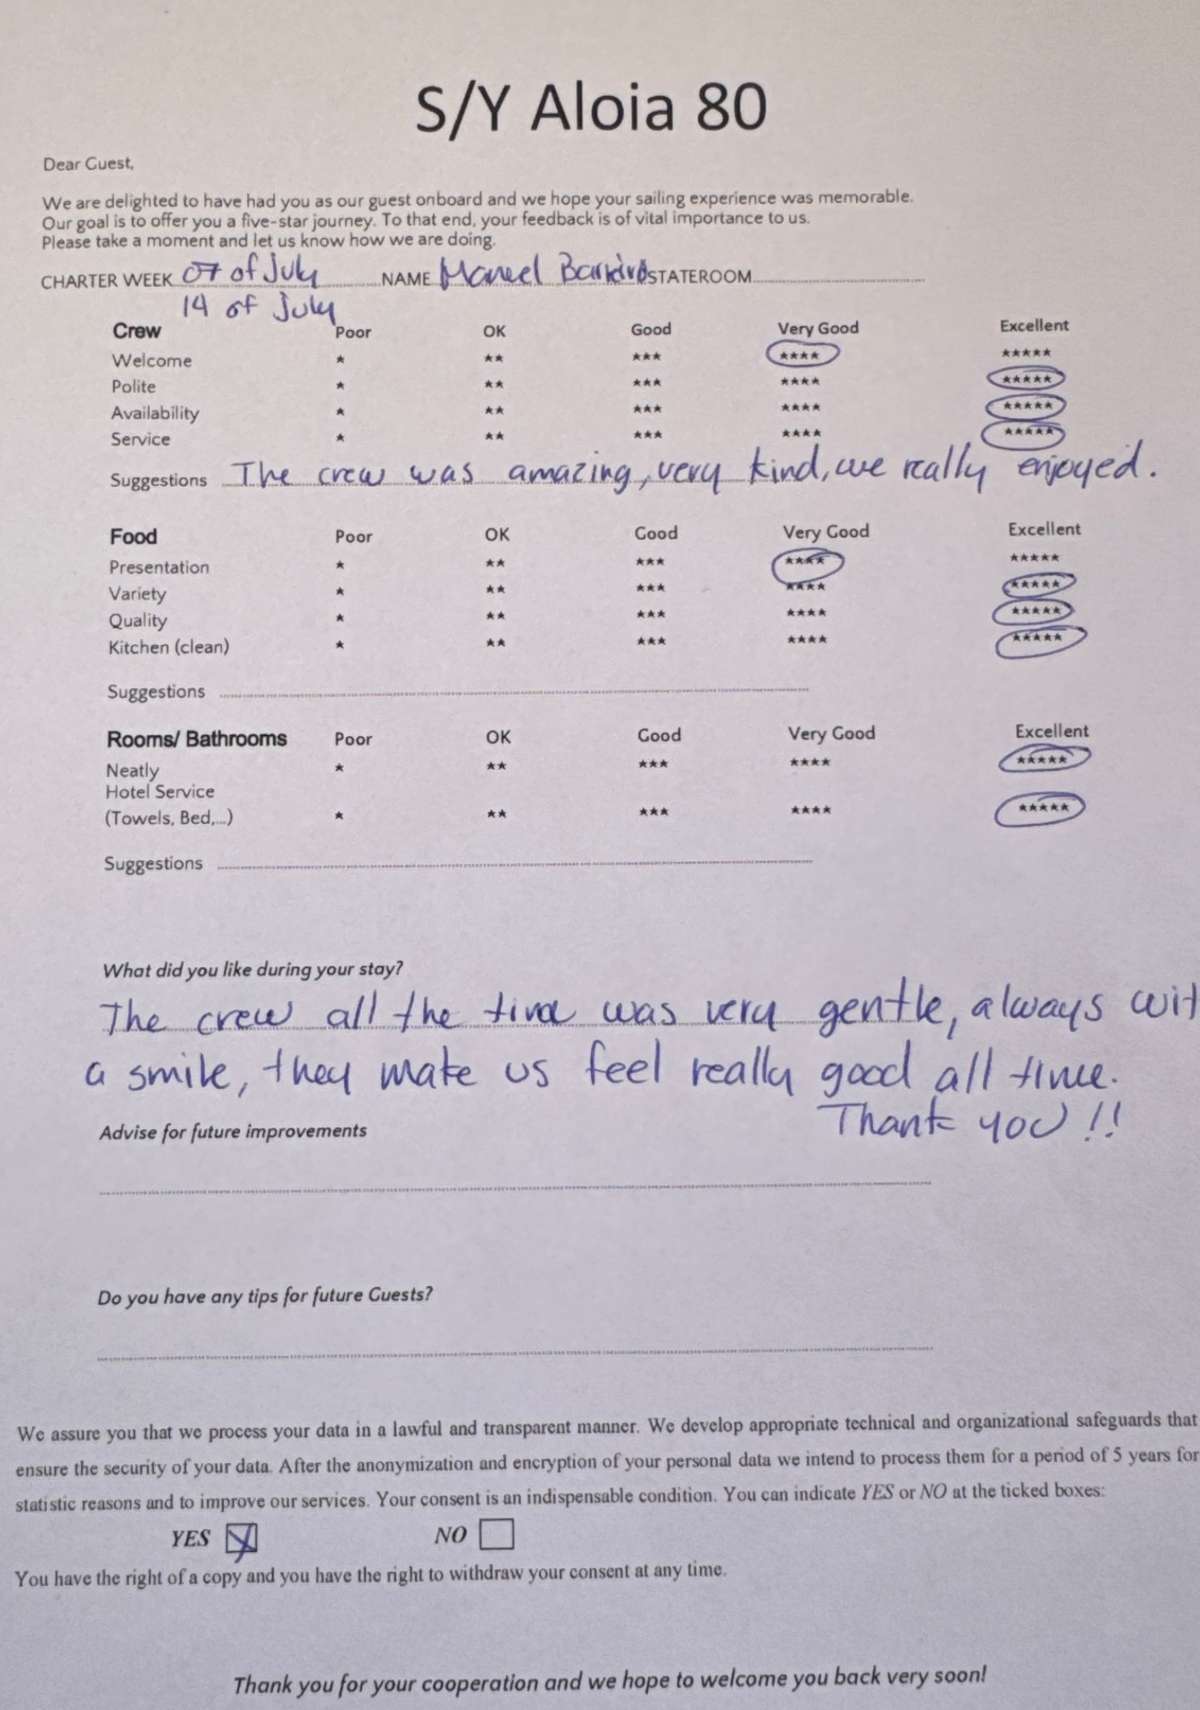 S/Y Aloia 80
Dear Guest,
We are delighted to have had you as our guest onboard and we hope your sailing experience was memorable.
Our goal is to offer you a five-star journey. To that end, your feedback is of vital importance to us.
Please take a moment and let us know how we are doing.
CHARTER WEEK 07 of July NAME STATEROOM
14 of July
Crew Poor OK Good Very Good Excellent
Welcome * ** *** **** *****
Polite * ** *** **** *****
Availability * ** *** **** *****
Service * ** *** **** *****
Suggestions The crew was amazing, very kind, we really enjoyed.
Food Poor OK Good Very Good Excellent
Presentation * ** *** **** *****
Variety * ** *** **** *****
Quality * ** *** **** *****
Kitchen (clean) * ** *** **** *****
Suggestions
Rooms/ Bathrooms Poor OK Good Very Good Excellent
Neatly * ** *** **** *****
Hotel Service
(Towels, Bed,...) * ** *** **** *****
Suggestions
What did you like during your stay?
The crew all the time was very gentle, always wit
a smile, they make us feel really good all time.
Thank you !!
Advise for future improvements
Do you have any tips for future Guests?
We assure you that we process your data in a lawful and transparent manner. We develop appropriate technical and organizational safeguards that
ensure the security of your data. After the anonymization and encryption of your personal data we intend to process them for a period of 5 years for
statistic reasons and to improve our services. Your consent is an indispensable condition. You can indicate YES or NO at the ticked boxes:
YES NO
You have the right of a copy and you have the right to withdraw your consent at any time.
Thank you for your cooperation and we hope to welcome you back very soon!